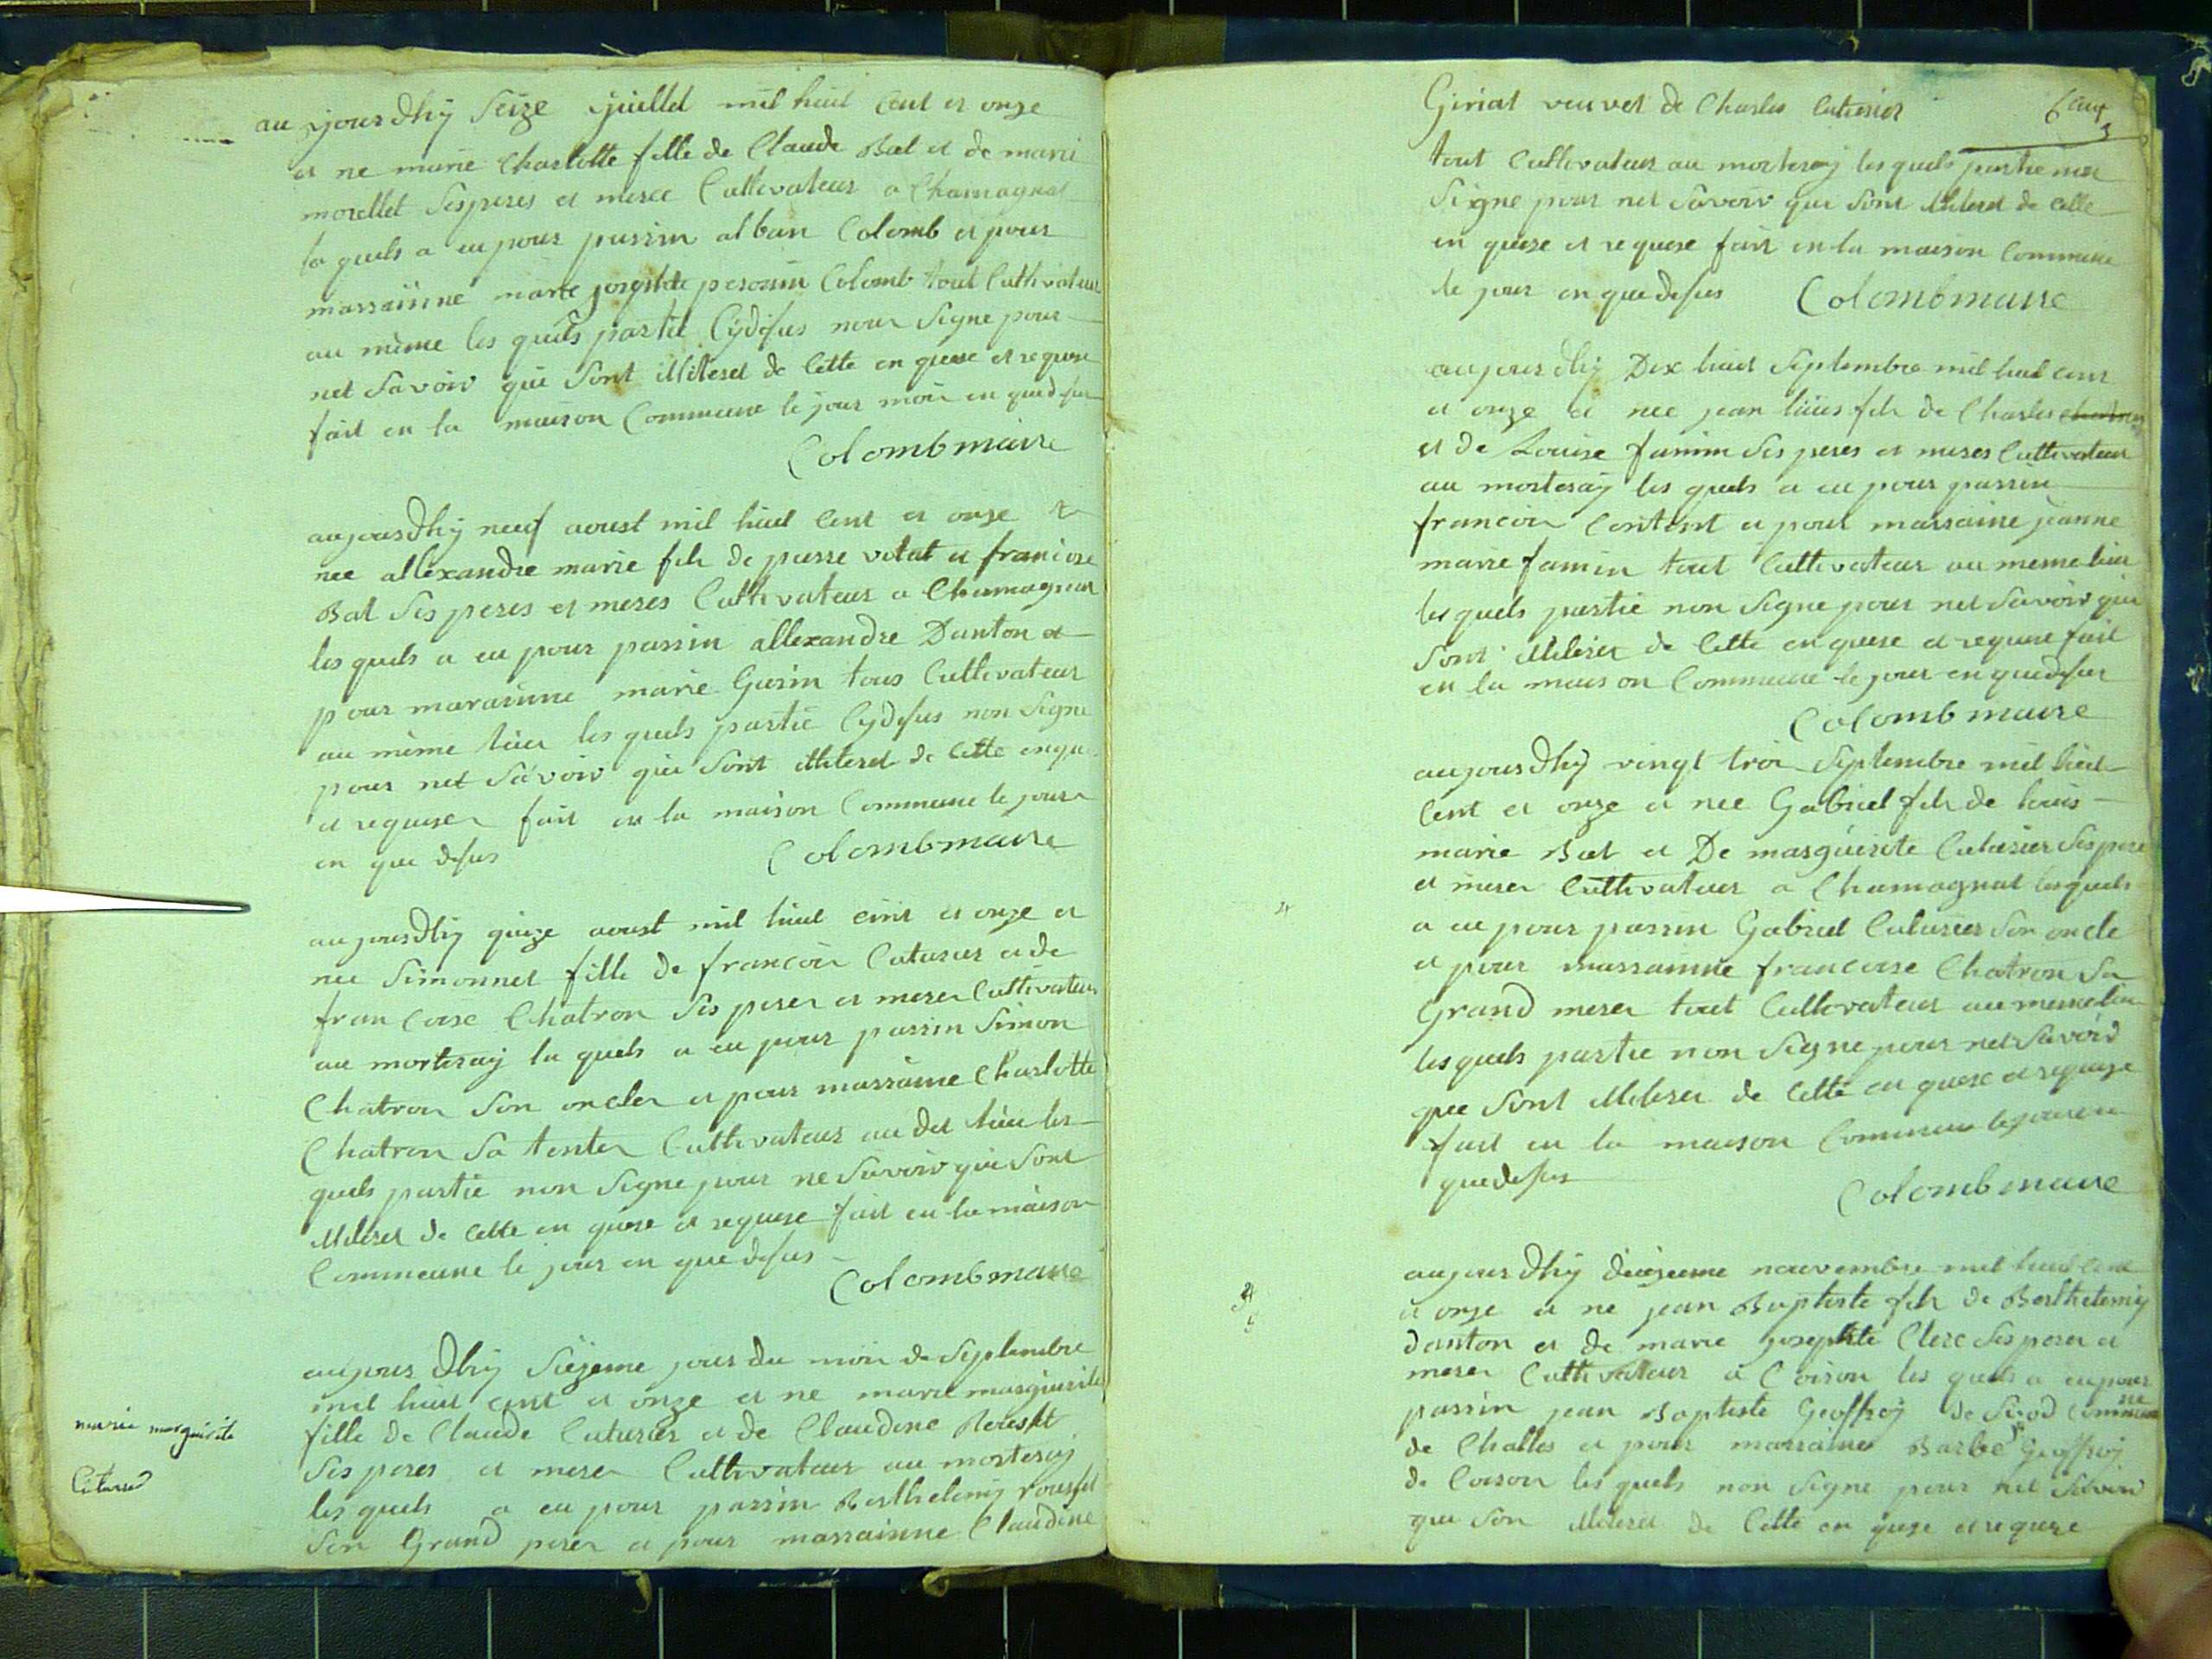 au jourdhŷ Seize juillet mil huit Cent et onze
et ne marie Charlotte fille de Claude Bat et de marie
morellet Sesperes et merce Cultivateur a Chamagnat
la quels a eu pour parrin alban Colomb et pour
marrainne marie josephte perouin Colomb tout Cultivateur
au même les quels partie Cydesus nour Signe pour
net Savoir qui Sont illiteret de Cette en quese et requese
fait en la maison Commune le jour moir en quedesus
Colomb maire
aujourdhŷ neuf aoust mil huit Cent et onze et
nee allexandre marie fils de pierre vitat et francoise
Bat Ses peres et meres Cultivateur a Chamagnat
les quels a eu pour parrin allexandre Danton et
pour mararinne marie Guerin tous Cultivateur
au même lieu les quels partie Cydesus non Signe
pour net Savoir qui Sont illiteret de Cette enque
et requiser fait en la maison Commune le jour
en que desus Colomb maire
aujourdhŷ quize aoust mil huit cint et onze et
nee Simonnet fille de francoir Cuturier et de
francoise Chatron Ses perer et merer Cultivateur
au morteraŷ la quels a eu pour parrin Simon
Chatron Son oncler et pour marraine Charlotte
Chatron Sa tenter Cultivateur au det lieu les
quels partie non Signe pour ne Savoir qui Sont
illiteret de Cette en quese et requese fait en la maison
Commeune le jour en que desus
Colomb maire
aujour dhŷ Siezieme jour du moir de Septembre
mil huit cent et onze et ne marie marguerite
marie marguirite
Cuturier
fille de Claude Cuturier et de Claudine
Ses peres et merer Cultivateur au morteraj
les quels a eu pour parrin Berthelemŷ rousset
Son Grand perer et pour marrainne Claudine
6
Giriat veuvet de Charles Cuturier
tout Cultivateur au morteraj les quels partie non
Signe pour net Savoir qui Sont illiteret de Cette
en quese et requese fait en la maison Commune
le jour en quedesus Colomb maire
aujour dhŷ Dix huit Septembre mil huit cent
et onze et nee jean luis fils de Charles
et de Louise famin Ses peres et meres Cultivateur
au morteraŷ les quels a eu pour parrin
francoir Contant et pour marraine jeanne
marie famin tout Cultivateur au meme lieu
les quels partie non Signe pour net Savoir qui
Sont illiteret de Cette en quese et requese fait
en la maison Commune le jour en quedesus
Colomb maire
aujourdhŷ vingt troi Septembre mil huit
Cent et onze et nee Gabriel fils de louis
marie Bat et De marguerite Cuturier Ses pere
et merer Cultivateur a Chamagnat les quels
a eu pour parrin Gabriel Cuturier Son oncle
et pour marrainne francoise Chatron Sa
Grand merer tout Cultivateur au meme lieu
les quels partie non Signe pour net Savoir
que Sont illiteret de Cette en quese et requese
fait en la maison Commune le jour en
quedesus Colomb maire
aujour dhŷ diezieme nouvembre mil huit cent
et onze et ne jean Baptiste fils de Berthelemŷ
danton et de marie josephte Clerc Ses perer et
merer Cultivateur a Coison les quels a eu pour
parrin jean Baptiste Geoffroŷ de Commune
de Challes et pour marraine Barbe Geoffroj
de Coison les quels non Signe pour net Savoir
qui Son illiteret de Cette en quese et requese